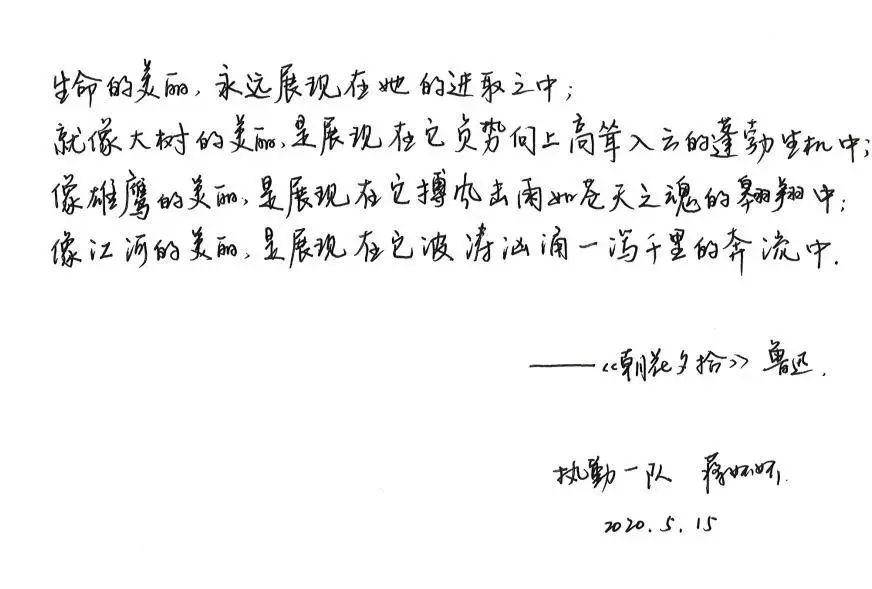 生命的美丽,永远展现在她的进取之中;
就像大树的美丽,是展现在它负势向上高耸入云的蓬勃生机中;
像雄鹰的美丽,是展现在它搏风击雨如苍天之魂的翱翔中;
像江河的美丽,是展现在它波涛汹涌一泻千里的奔流中.
——《朝花夕拾》鲁迅.
执勤一队
2020.5.15